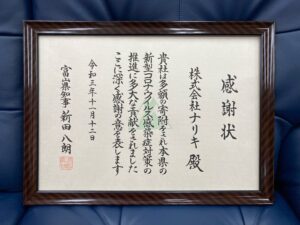 感謝状
株式会社ナリキ殿
貴社は多額の寄附をされ本県の
新型コロナウイルス感染症対策の
推進に多大な貢献をされました
ここに深く感謝の意を表します
令和三年十一月十二日
富山県知事 新田八朗